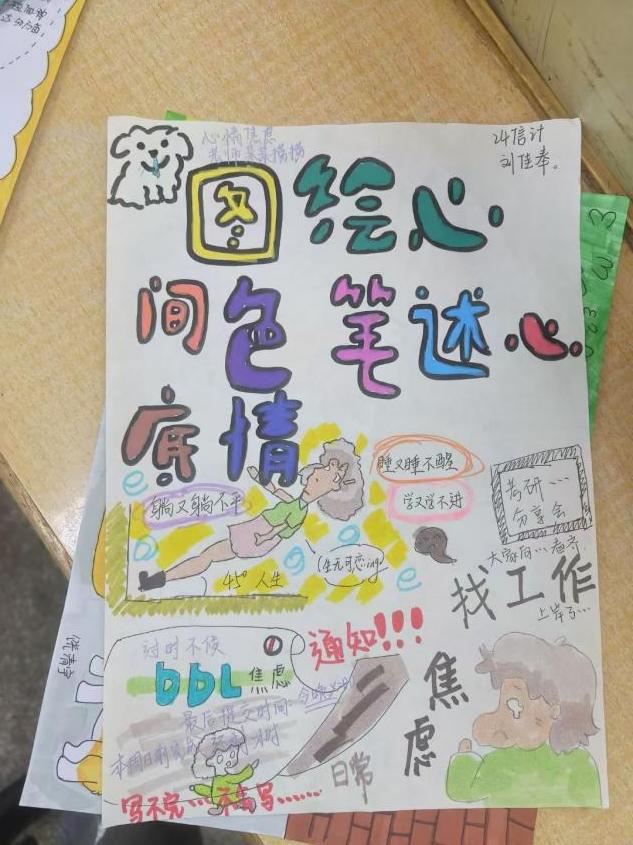 心情焦虑
老师莫莫摸摸
24信计
刘佳奉。
图绘心
间色 笔述心
底情
睡又睡不醒
躺又躺不平
学又学不进
考研…
分享会
生无可恋ing
45° 人生
找工作
上岸了…
过时不候
DDL 焦虑
通知!!!
焦虑
最后提交时间:今晚
日常
写不完……不想写……